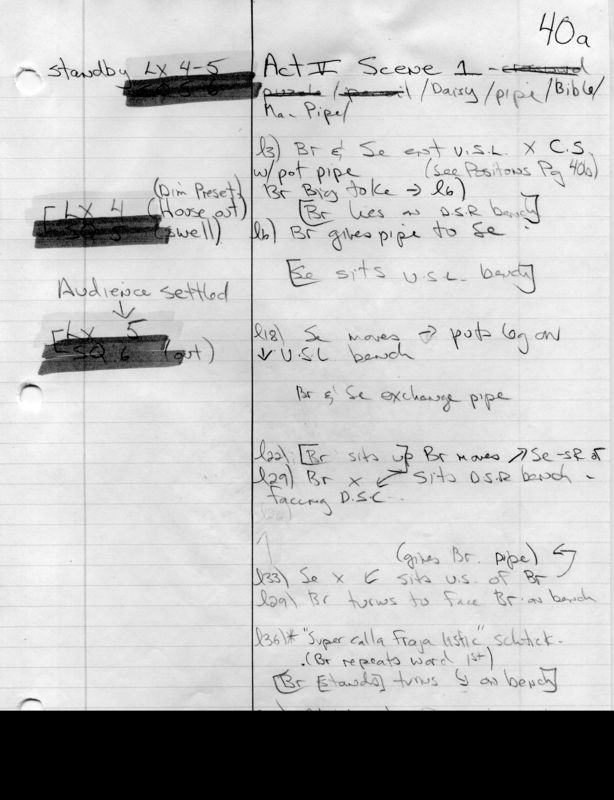 40a
standby LX 4-5
SQ 5-6
Act II Scene 1 -
/ /Daisy/pipe/Bible/
Pipe/
l3) Br & Se ent U.S.L. X C.S.
w/pot pipe (See Positions Pg 40b)
Br Bigg toke → l6)
[Br lies on D.S.R bench]
(Dim Preset)
[LX 4 (House out)
SQ 5 (swell)
l6) Br gives pipe to Se
[Se sits U.S.L. bench]
Audience settled
↓
[LX 5
SQ 6 (out)
l18) Se moves → puts leg on
↓ U.S.L bench
Br & Se exchange pipe
l22) [Br sits up] Br moves ↗ Se - SR of
l29) Br X ↙ sits D.S.R bench -
facing D.S.C.
(gives Br. pipe)
l33) Se X ↙ sits U.S. of Br
l29) Br turns to face Br on bench
l36)* "Super calla fraja listic" schtick.
(Br repeats word 1st)
[Br [stands] turns ↳ on bench]